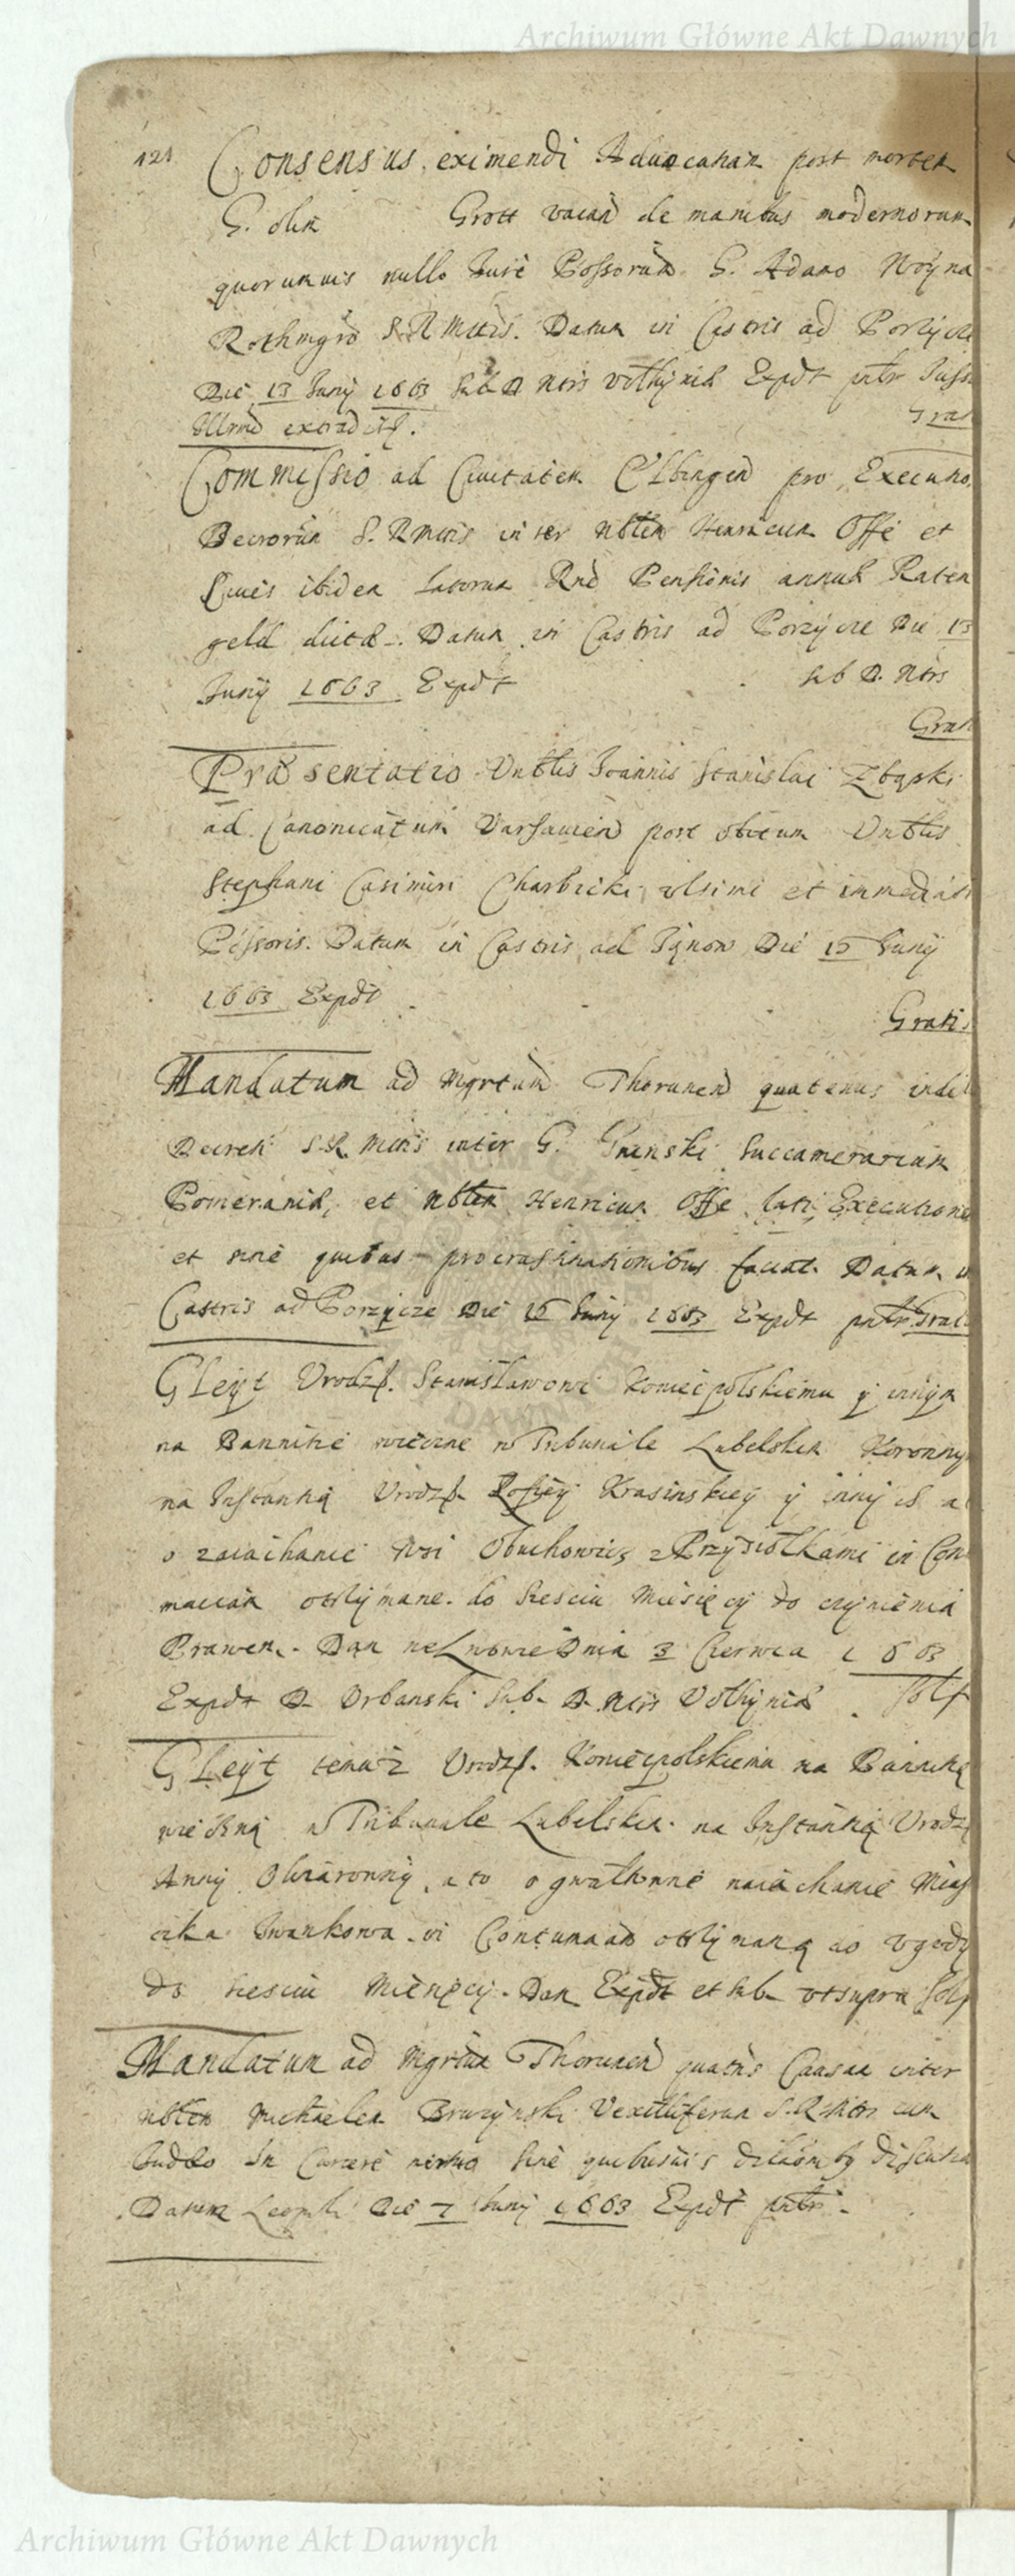 Archiwum Główne Akt Dawnych
121
Consensus eximendi Aduocatiam post mortem
G. olim Grott vacan de manibus modernorum
quorumuis nullo Jure Possorum G. Adamo Woyna
Rothmgro S. R. Mttis. Datum in Castris ad Porzycze
Die 13 Juny 1663 sub D Ntris Volhyniæ Expdt
Illrmd extradits.
Commissio ad Ciuitatem Elbingen pro Executio
Decrorum S. R Mttis inter Nbtem Henricum Offe et
Ciues ibidem latorum Rne Pensionis annuæ Raten
geld dictæ. Datum in Castris ad Porzycze Die 13
Juny 1663 Expdt sub D. Ntris
Grat
Præsentatio Vnblis Joannis Stanislai Zbąski
ad Canonicatum Varsauien post obitum Vnblis
Stephani Casimiri Charbicki vltimi et immediati
Possoris. Datum in Castris ad Die 15 Juny
1663 Expdt
Gratis
Mandatum ad Mgrtum Thorunen quatenus
Decreti S. R. Mttis inter G. Gninski Succamerarium
Pomeraniæ, et Nbtem Henricum Offe lati Executione
et sine quibus procrastinationibus faciat. Datum in
Castris ad Porzycze Die 15 Juny 1663 Expdt Grat
Gleyt Vrodz. Stanisławowi Koniecpolskiemu y innym
na Bannitie wieczne w Tribunale Lubelskim Koronny
na Instantią Vrodz. Zofiey Krasinskiey y innych a
o zaiachanie Wsi Obuchowicz z Przysiołkami in Con
maciam otrzymane do szesciu Miesięcy do czynienia
Prawem. Dan we Lwowie Dnia 3 Czerwca 1663
Expdt D. Vrbanski sub D. Ntris Volhyniæ Solt
Gleyt temuz Vrodz. Koniecpolskiemu na Bannitią
wieczną w Tribunale Lubelskim na Instantią Vrodz
Anny a to o gwałtowne naiachanie Mias
czka Iwankowa in Contumaciam otrzymaną do vgody
do szesciu Miesięcy. Dan Expdt et sub vt supra Solt
Mandatum ad Mgrtum Thorunen quatns Causam inter
Nbtem Michaelem Bruczynski Vexilliferum S. R Mttis cum
Judæo In Carcere sine quibusuis dilaōnibq discutiat
Datum Leopoli Die 7 Juny 1663 Expdt pntr.
Archiwum Główne Akt Dawnych